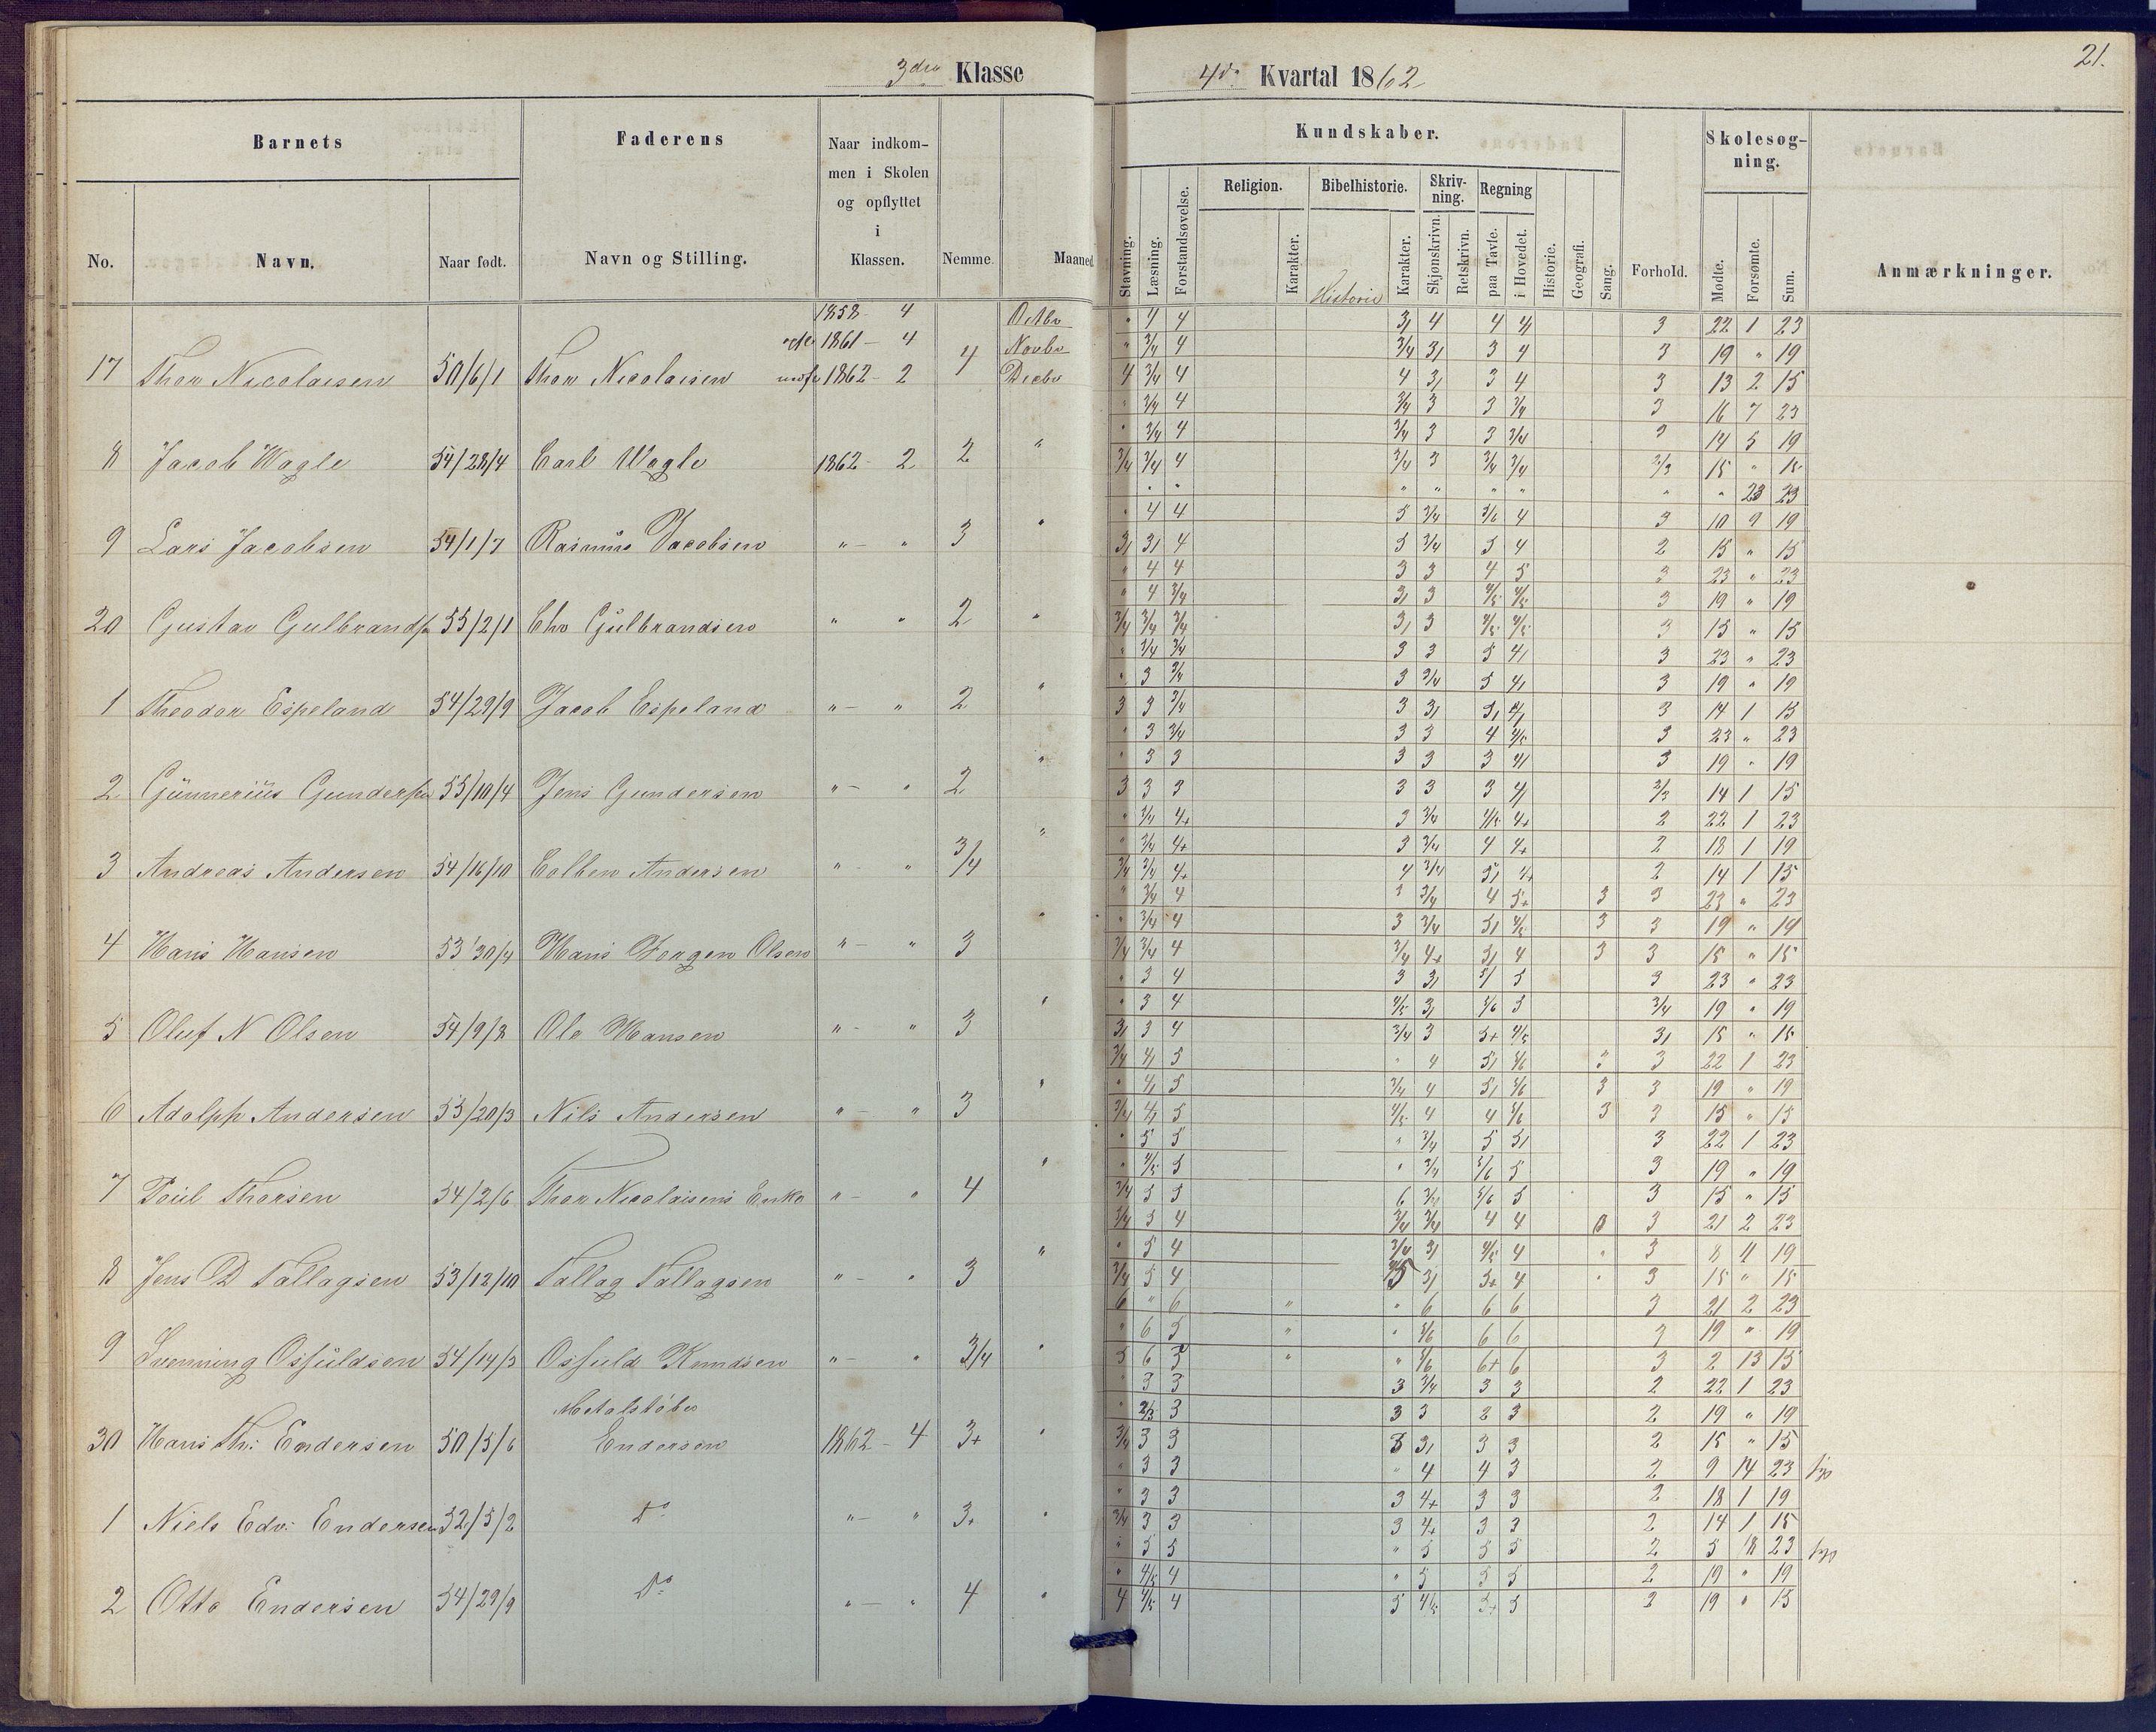 3die Klasse
4de Kvartal 1862
21.
Barnets
Faderens
Naar indkom-
men i Skolen
og opflyttet
i
Klassen.
No.
Navn.
Naar født.
Navn og Stilling.
Nemme
Maaned
Kundskaber.
Stavning.
Læsning.
Forstandsøvelse.
Religion.
Karakter.
Bibelhistorie.
Historie
Karakter.
Skriv-
ning.
Skjønskrivn.
Retskrivn.
Regning
paa Tavle.
i Hovedet.
Historie.
Geografi.
Sang.
Forhold.
Skolesøg-
ning.
Mødte.
Forsømte.
Sum.
Anmærkninger.
1858 - 4 Octbr
1861 - 4 Novbr
17 Thor Nicolaisen 50/6/1 Thor Nicolaisen 1862 - 2 4 Decbr
8 Jacob Wagle 54/28/4 Carl Wagle 1862 - 2 2 "
9 Lars Jacobsen 54/1/7 Rasmus Jacobsen " - " 3 "
20 Gustav Gulbrands 55/2/1 Chr Gulbrandsen " " 2 "
1 Theodor Espeland 54/29/9 Jacob Espeland " - " 2 "
2 Gunnerius Gunders 55/10/4 Jens Gundersen " - " 2 "
3 Andreas Andersen 54/16/10 Colben Andersen " - " 3/4 "
4 Hans Hansen 53 30/4 Hans Jørgen Olsen " - " 3 "
5 Oluf N Olsen 54/9/8 Ole Hansen " - " 3 "
6 Adolph Andersen 55/20/3 Nils Andersen " - " 3 "
7 Poul Thorsen 54/2/6 Thor Nicolaisens Enke " - " 4 "
8 Jens D Tallagsen 53/12/10 Tallag Tallagsen " - " 3 "
9 Svenning Osfuldsen 54/14/3 Osfuld Knudsen " - " 3/4 "
Metalstøber
30 Hans Th: Endersen 50/5/6 Endersen 1862 - 4 3+ "
1 Niels Edv: Endersen 52/5/2 Do " - " 3+ "
2 Otto Endersen 54/29/9 Do " - " 4 "
" 4 4 3/ 4 4 4/ 3 22 1 23
" 3/4 4 3/4 3/ 3 4 3 19 " 19
4 3/4 4 4 3/ 3 4 3 13 2 15
" 3/4 4 3/4 3 3 3/4 3 16 7 23
" 3/4 4 3/4 3 3 3/4 3 14 5 19
3/4 3/4 4 3/4 3 3/4 3/4 2/3 15 " 15
" " " " " " " " 23 23
" 4 4 5 3/4 5/6 4 3 10 9 19
3/ 3/ 4 5 3/4 5 4 2 15 " 15
" 4 4 3 3 4 5 3 23 " 23
" 4 3/4 3/ 3 4/5 4/5 3 19 " 19
3/4 3/4 3/4 3/ 3 4/5 4/5 3 15 " 15
" 3/4 3/4 3 3 5 4/ 3 23 " 23
" 3 3/4 3 3/4 5 4/ 3 19 " 19
3 3 3/4 3 3/ 5/ 4/ 3 14 1 15
" 3 3/4 3 3 4 4/5 3 23 " 23
" 3 3 3 3 3 4/ 3 19 " 19
3 3 3 3 3 3 4/ 2/3 14 1 15
" 3/4 4+ 3 3/4 4/5 4+ 2 22 1 23
" 3/4 4+ 3 3/4 4 4+ 2 18 1 19
3/4 3/4 4+ 4 3/4 5/ 4+ 2 14 1 15
" 3/4 4 3 3/4 4 5+ 3 3 23 " 23
" 3/4 4 3 3/4 5/ 4/5 3 3 19 " 19
3/4 3/4 4 3/4 4+ 5/ 4 3 3 15 " 15
" 3 4 3 3/ 5/ 5 3 23 " 23
" 3 4 4/5 3/ 5/6 5 3/4 19 " 19
3/ 3 4 3/4 3 5+ 4/5 3/ 15 " 15
3/4 4/ 5 " 4 5/ 5/6 3 3 22 1 23
" 4/ 5 3/4 4 5/ 5/6 3 3 19 " 19
3/4 4/ 5 4/5 4 4 5/6 3 3 15 " 15
" 5 5 " 3/4 5 5/ 3 22 1 23
" 4/5 5 " 3/4 5/6 5 3 19 " 19
3/4 5 5 6 3/4 5/6 5 3 15 " 15
3/4 5 4 3/4 3/4 4 4 3 21 2 23
" 5 4 3/4 3/ 4/5 4 " 3 8 11 19
3/4 5 4 5 3/ 5+ 4 " 3 15 " 15
6 " 6 " " 6 6 6 3 21 2 23
" 6 5 " " 5/6 6 6 3 19 " 19
5 6 5 " " 5/6 6+ 6 3 2 13 15
" 3 3 3 3/4 3 3 2 22 1 23
" 2/3 3 3 3 2 3 2 19 " 19
3/4 3 3 3 3/ 3 3 2 15 " 15
" 3 3 " 4 4 3 2 9 14 23 syg
" 3 3 3 4+ 3 3 2 18 1 19
3/4 3 3 3 4+ 3 3 2 14 1 15
" 5 5 " 5 5 5 2 5 18 23 syg
" 4/5 4 " 5 5 5 2 19 " 19
4 4/5 4 5 4/5 5+ 5 2 19 " 15